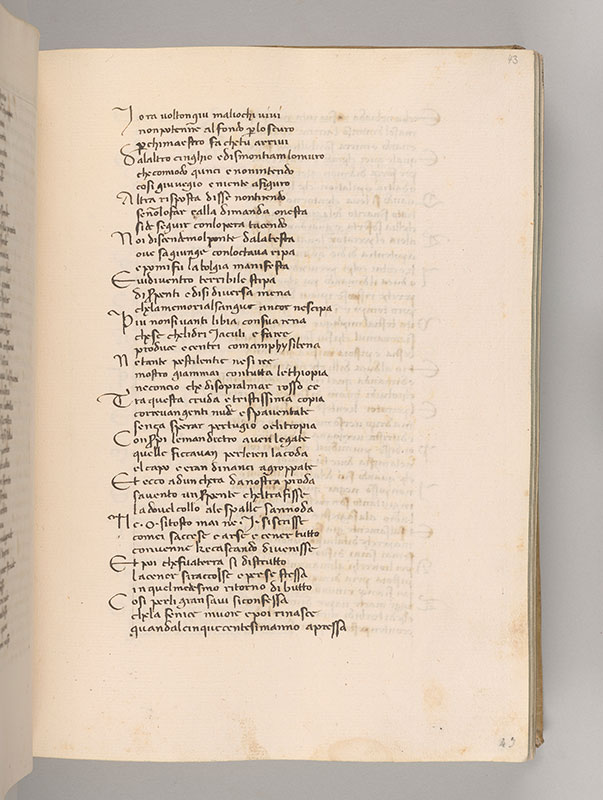 43
I o ra voltongiu maliochi vivi
non potenire alfondo p loscuro
p chi maestro fa chetu arrivi
Dalaltro cinghio e dismontiam lo muro
che comiodo quinci e nonintendo
cosi giu vegio e niente afiguro
Altra risposta disse nontirendo
senõ lofar calla dimanda onesta
side seguir conlopera tacendo
Noi discendemol ponte dalatesta
ove sagiunge conloctava ripa
e pomi fu labolgia manifesta
E vidiventro terribile stipa
di serpenti e disi diversa mena
chelamemorial sangue ancor nescipa
Piu nonsi vanti libia consua rena
che se chelidri Jaculi e faree
produce e centri com amphysibena
Ne tante pestilentie nesi ree
mostro giammai contutta lethiopia
neconcio che disopralmar rosso ee
Tra questa cruda e tristissima copia
correvan genti nude e spaventate
senza sperar pertugio o elitropia
Con serpi lemandrietro aven legate
quelle ficcavan per le ren lacoda
el capo e eran dinanci agroppate
Et ecco adunchera da nostra proda
savento un serpente cheltrafisse
la dovel collo ale spalle sannoda
Ne . O . sitosto mai ne . I . siscrisse
comei saccese e arse e cener tutto
convenne ke cascando divenisse
Et poi che fu aterra si distrutto
la cener si raccolse e perse stessa
in quel medesmo ritorno di butto
Cosi perli gran savi siconfessa
chela fenice muore e poi rinasce
quandal cinquecentesimanno apressa